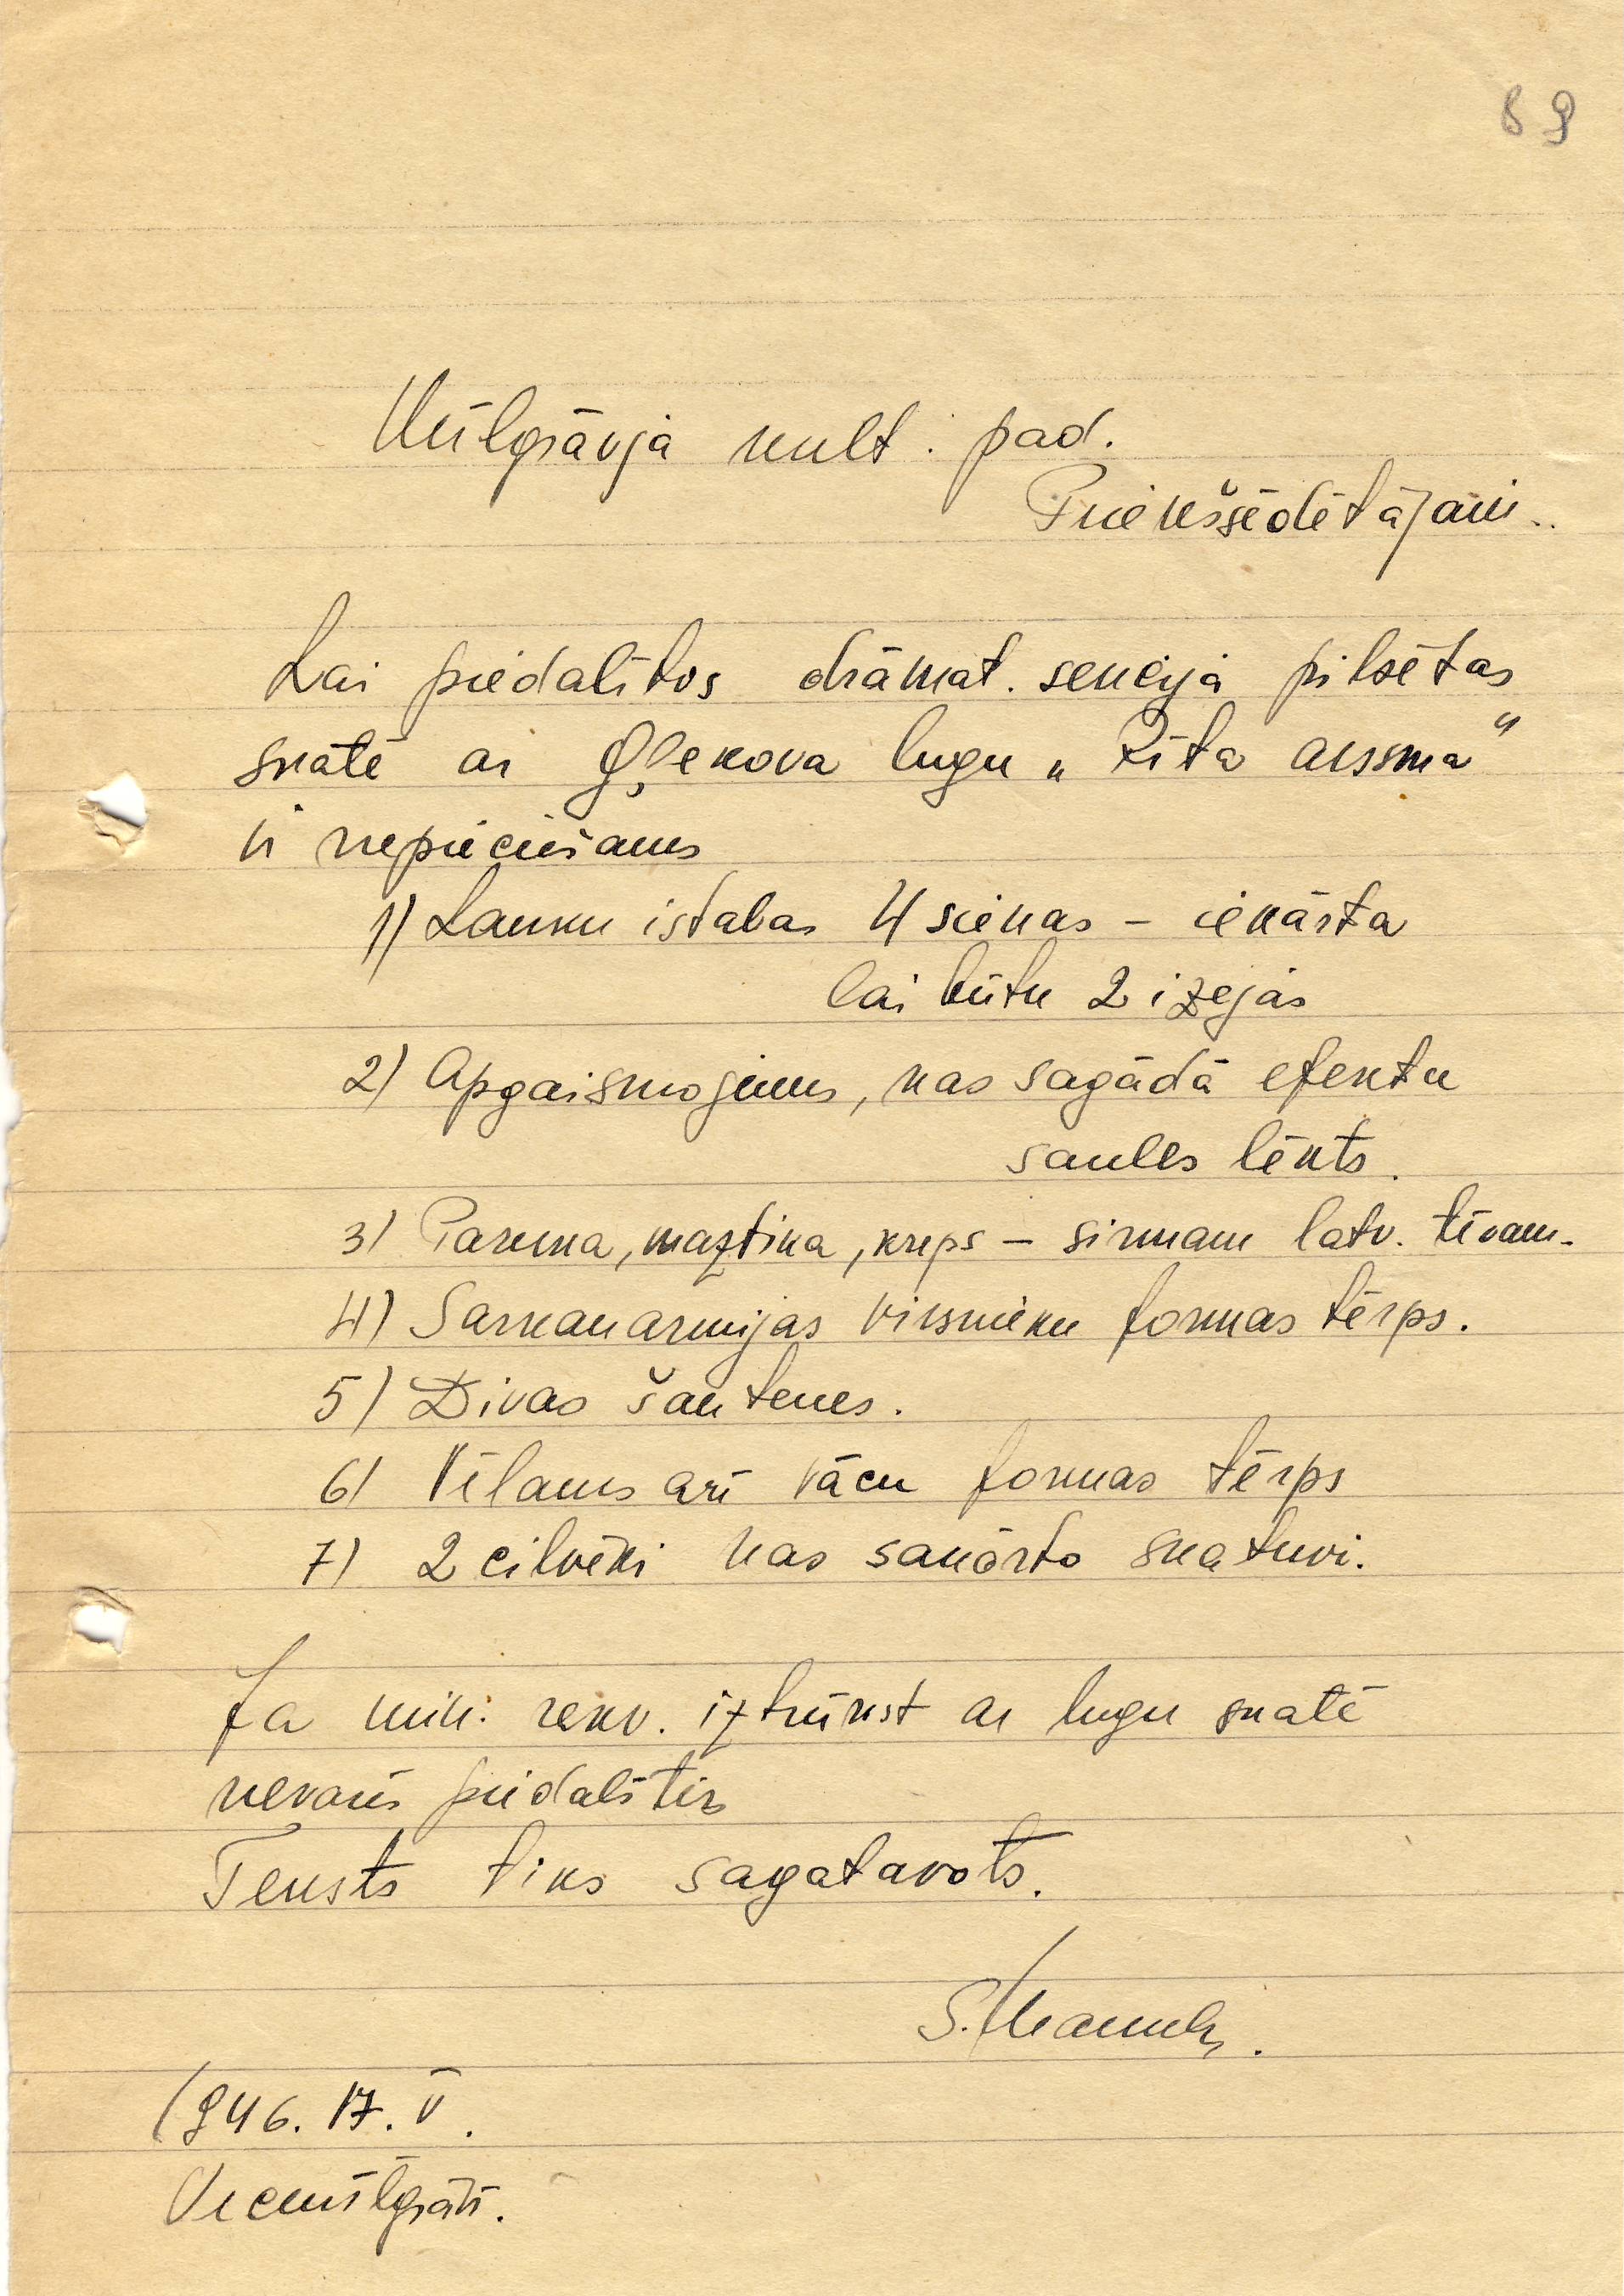 89
Mīlgrāvja kult. pad.
Priekšsēdētājam.
Lai piedalītos drāmat. sekcija pilsētas
skatē ar Gļekova lugu „Rīta ausma"
ir nepieciešams
1) Lauku istabas 4 sienas – iekārta
lai būtu 2 izejas
2) Apgaismojums, kas sagādā efektu
saules lēkts.
3) Paruka, maztika, kreps – sirmam latv. tēvam.
4) Sarkanarmijas virsnieku formas tērps.
5) Divas šautenes.
6) Vēlams arī vācu formas tērps
7) 2 cilvēki kas sakārto skatuvi.
Ja min. rekv. iztrūkst ar lugu skatē
nevarēs piedalīties
Teksts tiks sagatavots.
S.
1946. 17. V.
Vecmīlgrāvī.